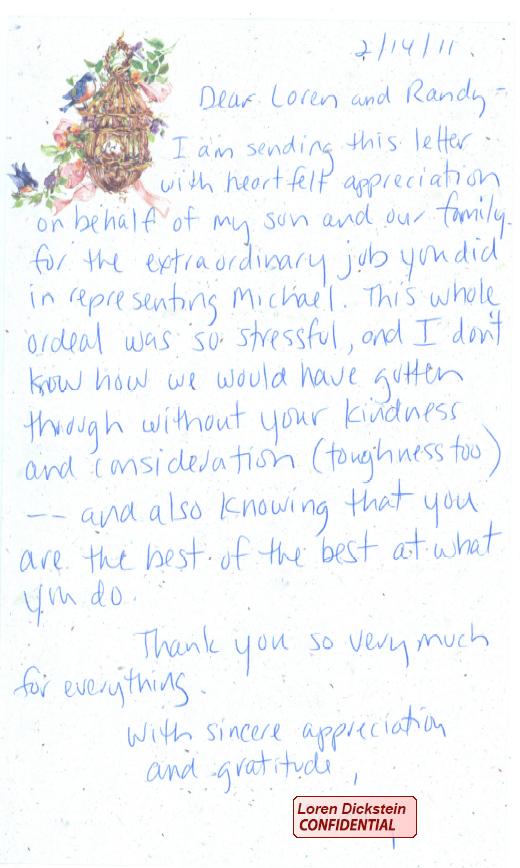 2/14/11.
Dear Loren and Randy -
I am sending this letter
with heartfelt appreciation
on behalf of my son and our family.
for the extraordinary job you did
in representing Michael. This whole
ordeal was so stressful, and I don't
know how we would have gotten
through without your kindness
and consideration (toughness too)
-- and also knowing that you
are the best of the best at what
you do.
Thank you so very much
for everything.
With sincere appreciation
and gratitude,
Loren Dickstein
CONFIDENTIAL